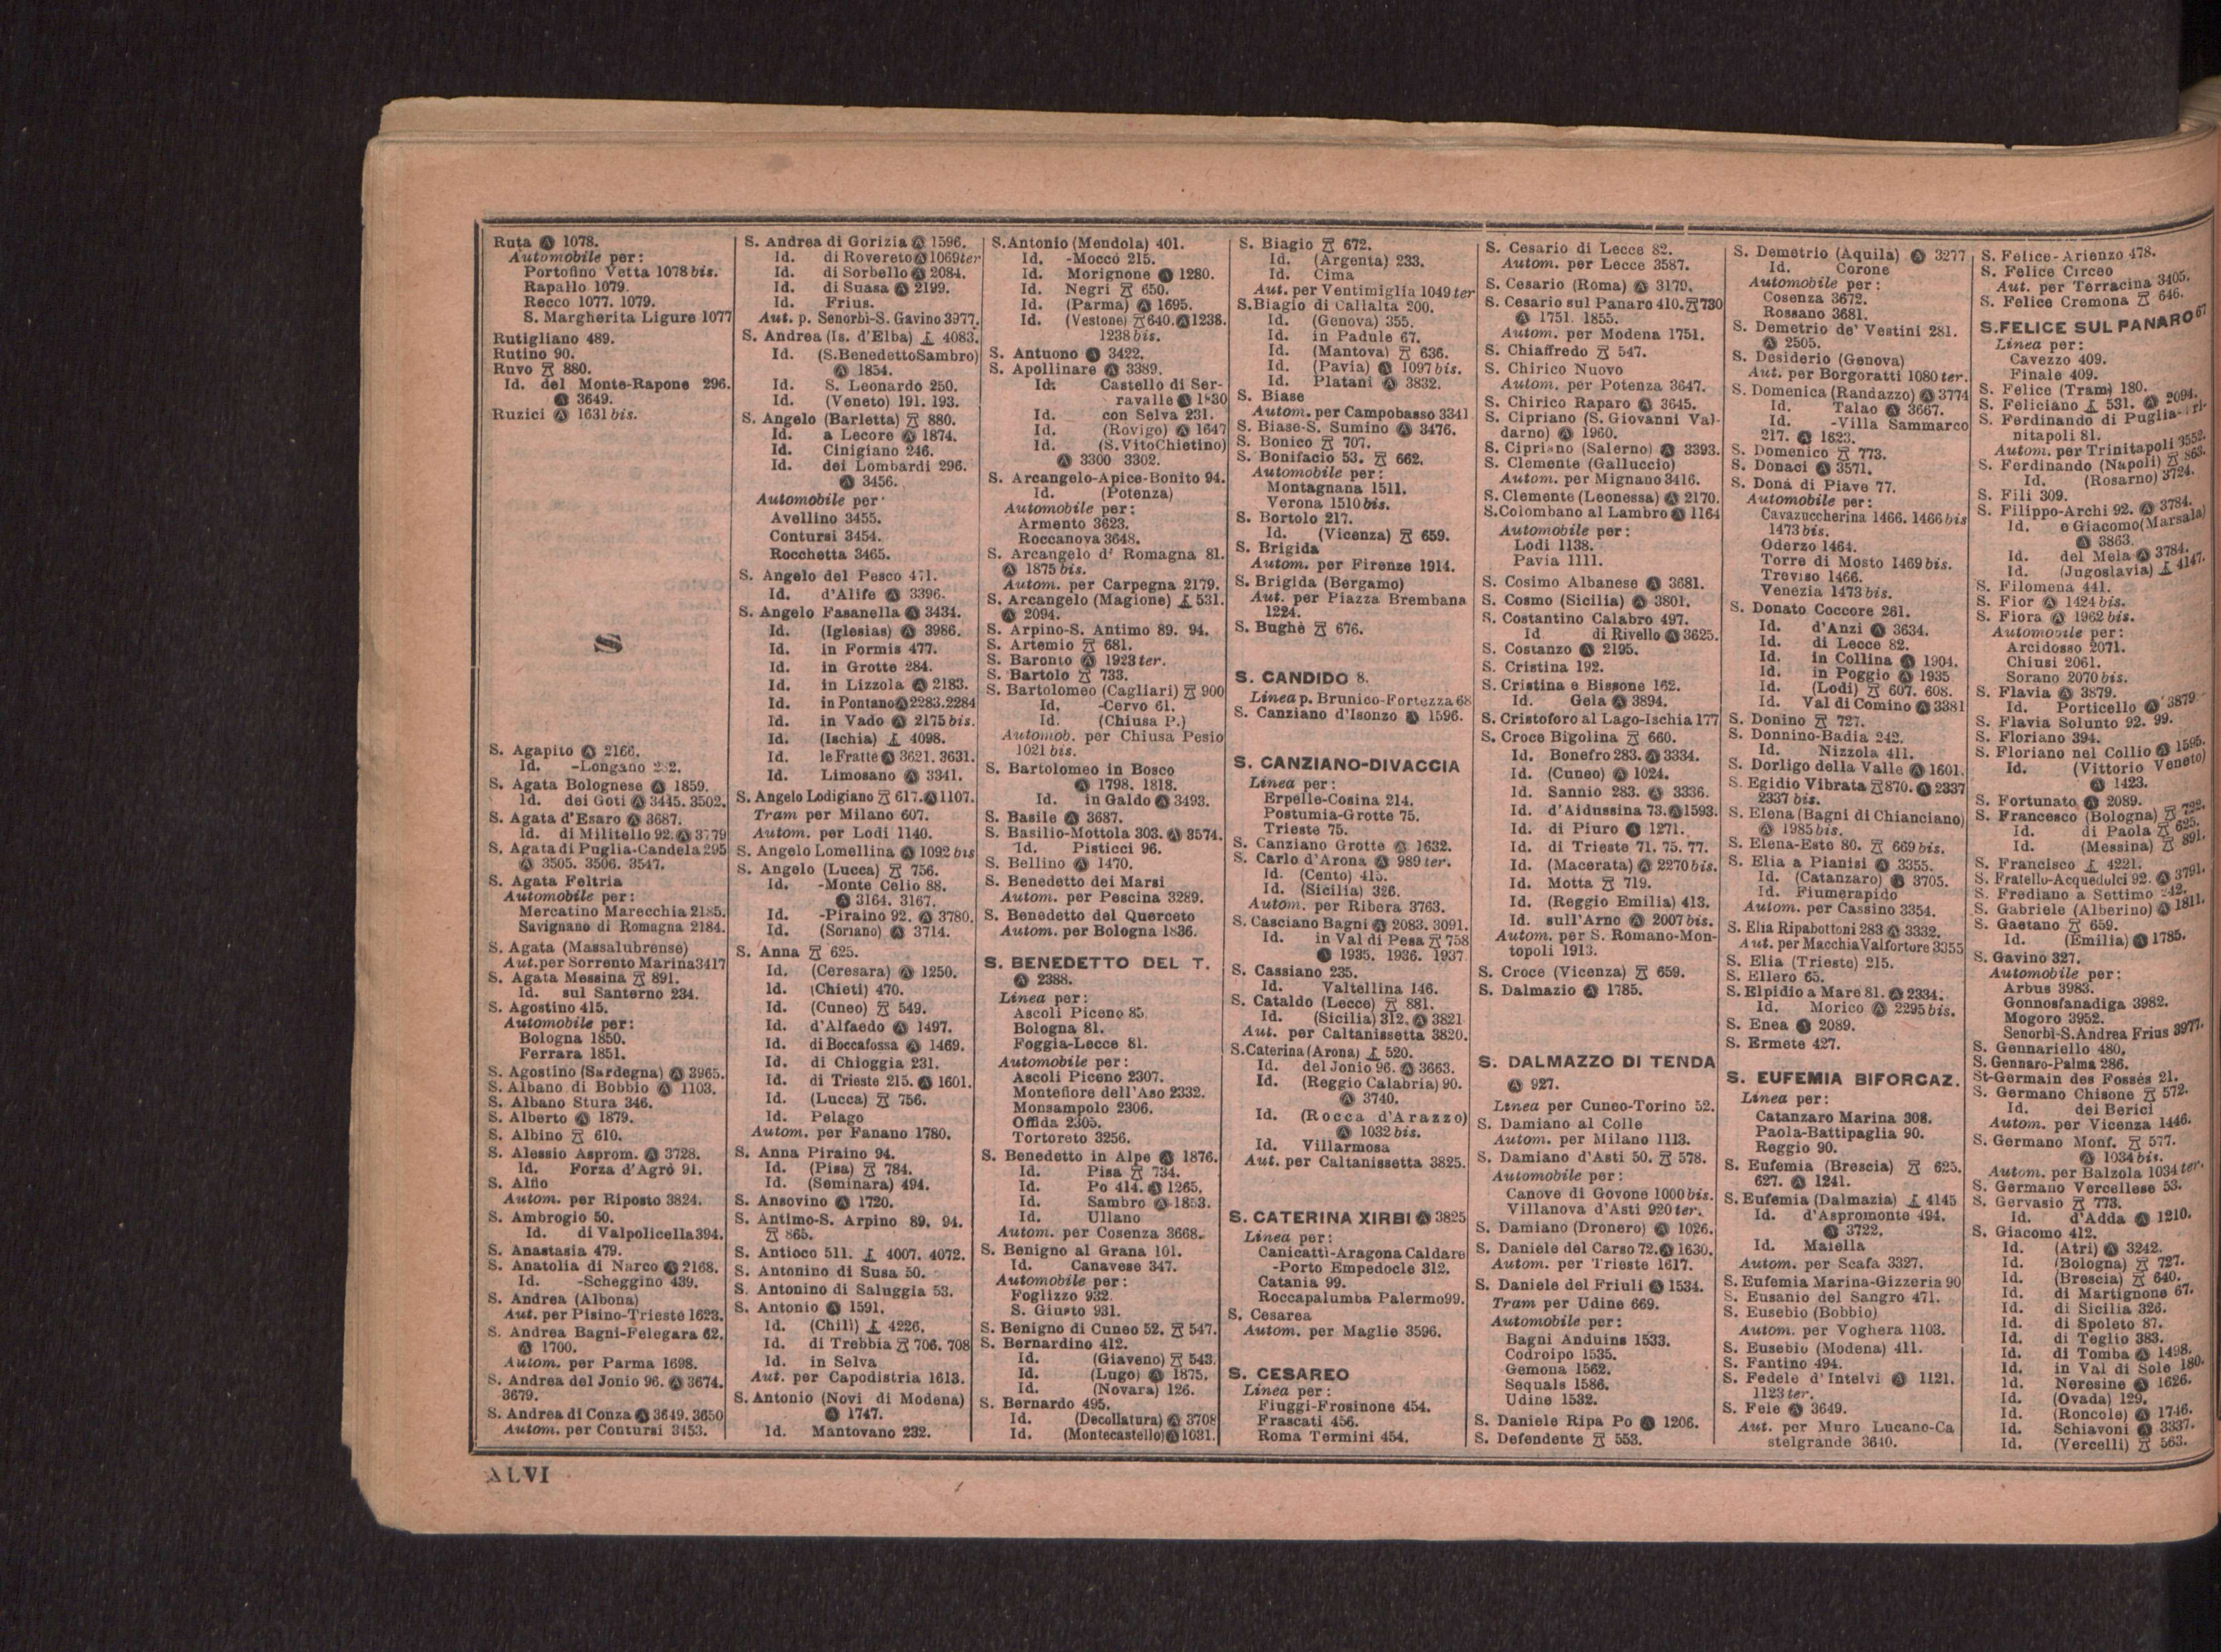 Ruta Ⓐ 1078.
Automobile per:
Portofino Vetta 1078 bis.
Rapallo 1079.
Recco 1077. 1079.
S. Margherita Ligure 1077
Rutigliano 489.
Rutino 90.
Ruvo 880.
Id. del Monte-Rapone 296.
Ⓐ 3649.
Ruzici Ⓐ 1631 bis.
S
S. Agapito Ⓐ 2166.
Id. -Longano
S. Agata Bolognese Ⓐ 1859.
Id. dei Goti Ⓐ 3445. 3502.
S. Agata d'Esaro Ⓐ 3687.
Id. di Militello 92. Ⓐ 3779
S. Agata di Puglia-Candela 295
Ⓐ 3505. 3506. 3547.
S. Agata Feltria
Automobile per:
Mercatino Marecchia 2185.
Savignano di Romagna 2184.
S. Agata (Massalubrense)
Aut. per Sorrento Marina 3417
S. Agata Messina 891.
Id. sul Santerno 234.
S. Agostino 415.
Automobile per:
Bologna 1850.
Ferrara 1851.
S. Agostino (Sardegna) Ⓐ 3965.
S. Albano di Bobbio Ⓐ 1103.
S. Albano Stura 346.
S. Alberto Ⓐ 1879.
S. Albino 610.
S. Alessio Asprom. Ⓐ 3728.
Id. Forza d'Agrò 91.
S. Alfio
Autom. per Riposto 3824.
S. Ambrogio 50.
Id. di Valpolicella 394.
S. Anastasia 479.
S. Anatolia di Narco Ⓐ 2168.
Id. -Scheggino 439.
S. Andrea (Albona)
Aut. per Pisino-Trieste 1623.
S. Andrea Bagni-Felegara 62.
Ⓐ 1700.
Autom. per Parma 1698.
S. Andrea del Jonio 96. Ⓐ 3674.
3679.
S. Andrea di Conza Ⓐ 3649. 3650
Autom. per Contursi 3453.
S. Andrea di Gorizia Ⓐ 1596.
Id. di Rovereto Ⓐ 1069 ter
Id. di Sorbello Ⓐ 2084.
Id. di Suasa Ⓐ 2199.
Id. Frius.
Aut. p. Senorbì-S. Gavino 3977.
S. Andrea (Is. d'Elba) 4083.
Id. (S. Benedetto Sambro)
Ⓐ 1854.
Id. S. Leonardo 250.
Id. (Veneto) 191. 193.
S. Angelo (Barletta) 880.
Id. a Lecore Ⓐ 1874.
Id. Cinigiano 246.
Id. dei Lombardi 296.
Ⓐ 3456.
Automobile per
Avellino 3455.
Contursi 3454.
Rocchetta 3465.
S. Angelo del Pesco 471.
Id. d'Alife Ⓐ 3396.
S. Angelo Fasanella Ⓐ 3434.
Id. (Iglesias) Ⓐ 3986.
Id. in Formis 477.
Id. in Grotte 284.
Id. in Lizzola Ⓐ 2183.
Id. in Pontano Ⓐ 2283. 2284
Id. in Vado Ⓐ 2175 bis.
Id. (Ischia) 4098.
Id. le Fratte Ⓐ 3621. 3631.
Id. Limosano Ⓐ 3341.
S. Angelo Lodigiano 617. Ⓐ 1107.
Tram per Milano 607.
Autom. per Lodi 1140.
S. Angelo Lomellina Ⓐ 1092 bis
S. Angelo (Lucca) 756.
Id. -Monte Celio 88.
Ⓐ 3164. 3167.
Id. -Piraino 92. Ⓐ 3780.
Id. (Soriano) Ⓐ 3714.
S. Anna 625.
Id. (Ceresara) Ⓐ 1250.
Id. (Chieti) 470.
Id. (Cuneo) 549.
Id. d'Alfaedo Ⓐ 1497.
Id. di Boccafossa Ⓐ 1469.
Id. di Chioggia 231.
Id. di Trieste 215. Ⓐ 1601.
Id. (Lucca) 756.
Id. Pelago
Autom. per Fanano 1780.
S. Anna Piraino 94.
Id. (Pisa) 784.
Id. (Seminara) 494.
S. Ansovino Ⓐ 1720.
S. Antimo-S. Arpino 89. 94.
865.
S. Antioco 511. 4007. 4072.
S. Antonino di Susa 50.
S. Antonino di Saluggia 53.
S. Antonio Ⓐ 1591.
Id. (Chill) 4226.
Id. di Trebbia 706. 708
Id. in Selva
Aut. per Capodistria 1613.
S. Antonio (Novi di Modena)
Ⓐ 1747.
Id. Mantovano 232.
S. Antonio (Mendola) 401.
Id. -Moccò 215.
Id. Morignone Ⓐ 1280.
Id. Negri 650.
Id. (Parma) Ⓐ 1695.
Id. (Vestone) 640. Ⓐ 1238.
1238 bis.
S. Antuono Ⓐ 3422.
S. Apollinare Ⓐ 3389.
Id. Castello di Ser-
ravalle Ⓐ 1830
Id. con Selva 231.
Id. (Rovigo) Ⓐ 1647
Id. (S. Vito Chietino)
Ⓐ 3300 3302.
S. Arcangelo-Apice-Bonito 94.
Id. (Potenza)
Automobile per:
Armento 3623.
Roccanova 3648.
S. Arcangelo di Romagna 81.
Ⓐ 1875 bis.
Autom. per Carpegna 2179.
S. Arcangelo (Magione) 531.
Ⓐ 2094.
S. Arpino-S. Antimo 89. 94.
S. Artemio 681.
S. Baronto Ⓐ 1923 ter.
S. Bartolo 733.
S. Bartolomeo (Cagliari) 900
Id. -Cervo 61.
Id. (Chiusa P.)
Automob. per Chiusa Pesio
1021 bis.
S. Bartolomeo in Bosco
Ⓐ 1798. 1818.
Id. in Galdo Ⓐ 3493.
S. Basile Ⓐ 3687.
S. Basilio-Mottola 303. Ⓐ 3574.
Id. Pisticci 96.
S. Bellino Ⓐ 1470.
S. Benedetto dei Marsi
Autom. per Pescina 3289.
S. Benedetto del Querceto
Autom. per Bologna 1836.
S. BENEDETTO DEL T.
Ⓐ 2388.
Linea per:
Ascoli Piceno 85.
Bologna 81.
Foggia-Lecce 81.
Automobile per:
Ascoli Piceno 2307.
Montefiore dell'Aso 2332.
Monsampolo 2306.
Offida 2305.
Tortoreto 3256.
S. Benedetto in Alpe Ⓐ 1876.
Id. Pisa 734.
Id. Po 414. Ⓐ 1265.
Id. Sambro Ⓐ 1853.
Id. Ullano
Autom. per Cosenza 3668.
S. Benigno al Grana 101.
Id. Canavese 347.
Automobile per:
Foglizzo 932.
S. Giusto 931.
S. Benigno di Cuneo 52. 547.
S. Bernardino 412.
Id. (Giaveno) 543.
Id. (Lugo) Ⓐ 1875.
Id. (Novara) 126.
S. Bernardo 495.
Id. (Decollatura) Ⓐ 3708
Id. (Montecastello) Ⓐ 1031.
S. Biagio 672.
Id. (Argenta) 233.
Id. Cima
Aut. per Ventimiglia 1049 ter
S. Biagio di Callalta 200.
Id. (Genova) 355.
Id. in Padule 67.
Id. (Mantova) 636.
Id. (Pavia) Ⓐ 1097 bis.
Id. Platani Ⓐ 3832.
S. Biase
Autom. per Campobasso 3341
S. Biase-S. Sumino Ⓐ 3476.
S. Bonico 707.
S. Bonifacio 53. 662.
Automobile per:
Montagnana 1511.
Verona 1510 bis.
S. Bortolo 217.
Id. (Vicenza) 659.
S. Brigida
Autom. per Firenze 1914.
S. Brigida (Bergamo)
Aut. per Piazza Brembana
1224.
S. Bughè 676.
S. CANDIDO 8.
Linea p. Brunico-Fortezza 68
S. Canziano d'Isonzo Ⓐ 1596.
S. CANZIANO-DIVACCIA
Linea per:
Erpelle-Cosina 214.
Postumia-Grotte 75.
Trieste 75.
S. Canziano Grotte Ⓐ 1632.
S. Carlo d'Arona Ⓐ 989 ter.
Id. (Cento) 415.
Id. (Sicilia) 326.
Autom. per Ribera 3763.
S. Casciano Bagni Ⓐ 2083. 3091.
Id. in Val di Pesa 758
Ⓐ 1935. 1936. 1937
S. Cassiano 235.
Id. Valtellina 146.
S. Cataldo (Lecce) 881.
Id. (Sicilia) 312. Ⓐ 3821
Aut. per Caltanissetta 3820.
S. Caterina (Arona) 520.
Id. del Jonio 96. Ⓐ 3663.
Id. (Reggio Calabria) 90.
Ⓐ 3740.
Id. (Rocca d'Arazzo)
Ⓐ 1032 bis.
Id. Villarmosa
Aut. per Caltanissetta 3825.
S. CATERINA XIRBI Ⓐ 3825
Linea per:
Canicattì-Aragona Caldare
-Porto Empedocle 312.
Catania 99.
Roccapalumba Palermo 99.
S. Cesarea
Autom. per Maglie 3596.
S. CESAREO
Linea per:
Fiuggi-Frosinone 454.
Frascati 456.
Roma Termini 454.
S. Cesario di Lecce 82.
Autom. per Lecce 3587.
S. Cesario (Roma) Ⓐ 3179.
S. Cesario sul Panaro 410. 730
Ⓐ 1751. 1855.
Autom. per Modena 1751.
S. Chiaffredo 547.
S. Chirico Nuovo
Autom. per Potenza 3647.
S. Chirico Raparo Ⓐ 3645.
S. Cipriano (S. Giovanni Val-
darno) Ⓐ 1960.
S. Cipriano (Salerno) Ⓐ 3393.
S. Clemente (Galluccio)
Autom. per Mignano 3416.
S. Clemente (Leonessa) Ⓐ 2170.
S. Colombano al Lambro Ⓐ 1164
Automobile per:
Lodi 1138.
Pavia 1111.
S. Cosimo Albanese Ⓐ 3681.
S. Cosmo (Sicilia) Ⓐ 3801.
S. Costantino Calabro 497.
Id di Rivello Ⓐ 3625.
S. Costanzo Ⓐ 2195.
S. Cristina 192.
S. Cristina e Bissone 162.
Id. Gela Ⓐ 3894.
S. Cristoforo al Lago-Ischia 177
S. Croce Bigolina 660.
Id. Bonefro 283. Ⓐ 3334.
Id. (Cuneo) Ⓐ 1024.
Id. Sannio 283. Ⓐ 3336.
Id. d'Aidussina 73. Ⓐ 1593.
Id. di Piuro Ⓐ 1271.
Id. di Trieste 71. 75. 77.
Id. (Macerata) Ⓐ 2270 bis.
Id. Motta 719.
Id. (Reggio Emilia) 413.
Id. sull'Arno Ⓐ 2007 bis.
Autom. per S. Romano-Mon-
topoli 1913.
S. Croce (Vicenza) 659.
S. Dalmazio Ⓐ 1785.
S. DALMAZZO DI TENDA
Ⓐ 927.
Linea per Cuneo-Torino 52.
S. Damiano al Colle
Autom. per Milano 1113.
S. Damiano d'Asti 50. 578.
Automobile per:
Canove di Govone 1000 bis.
Villanova d'Asti 920 ter.
S. Damiano (Dronero) Ⓐ 1026.
S. Daniele del Carso 72. Ⓐ 1630.
Autom. per Trieste 1617.
S. Daniele del Friuli Ⓐ 1534.
Tram per Udine 669.
Automobile per:
Bagni Anduins 1533.
Codroipo 1535.
Gemona 1562.
Sequals 1586.
Udine 1532.
S. Daniele Ripa Po Ⓐ 1206.
S. Defendente 553.
S. Demetrio (Aquila) Ⓐ 3277
Id. Corone
Automobile per:
Cosenza 3672.
Rossano 3681.
S. Demetrio de' Vestini 281.
Ⓐ 2505.
S. Desiderio (Genova)
Aut. per Borgoratti 1080 ter.
S. Domenica (Randazzo) Ⓐ 3774
Id. Talao Ⓐ 3667.
Id. -Villa Sammarco
217. Ⓐ 1623.
S. Domenico 773.
S. Donaci Ⓐ 3571.
S. Donà di Piave 77.
Automobile per:
Cavazuccherina 1466. 1466 bis
1473 bis.
Oderzo 1464.
Torre di Mosto 1469 bis.
Treviso 1466.
Venezia 1473 bis.
S. Donato Coccore 261.
Id. d'Anzi Ⓐ 3634.
Id. di Lecce 82.
Id. in Collina Ⓐ 1904.
Id. in Poggio Ⓐ 1935
Id. (Lodi) 607. 608.
Id. Val di Comino Ⓐ 3381
S. Donino 727.
S. Donnino-Badia 242.
Id. Nizzola 411.
S. Dorligo della Valle Ⓐ 1601.
S. Egidio Vibrata 870. Ⓐ 2337
2337 bis.
S. Elena (Bagni di Chianciano)
Ⓐ 1985 bis.
S. Elena-Este 80. 669 bis.
S. Elia a Pianisi Ⓐ 3355.
Id. (Catanzaro) Ⓐ 3705.
Id. Fiumerapido
Autom. per Cassino 3354.
S. Elia Ripabottoni 283 Ⓐ 3332.
Aut. per Macchia Valfortore 3355
S. Elia (Trieste) 215.
S. Ellero 65.
S. Elpidio a Mare 81. Ⓐ 2334.
Id. Morico Ⓐ 2295 bis.
S. Enea Ⓐ 2089.
S. Ermete 427.
S. EUFEMIA BIFORCAZ.
Linea per:
Catanzaro Marina 308.
Paola-Battipaglia 90.
Reggio 90.
S. Eufemia (Brescia) 625.
627. Ⓐ 1241.
S. Eufemia (Dalmazia) 4145
Id. d'Aspromonte 494.
Ⓐ 3722.
Id. Maiella
Autom. per Scafa 3327.
S. Eufemia Marina-Gizzeria 90
S. Eusanio del Sangro 471.
S. Eusebio (Bobbio)
Autom. per Voghera 1103.
S. Eusebio (Modena) 411.
S. Fantino 494.
S. Fedele d'Intelvi Ⓐ 1121.
1123 ter.
S. Fele Ⓐ 3649.
Aut. per Muro Lucano-Ca
stelgrande 3640.
S. Felice-Arienzo 478.
S. Felice Circeo
Aut. per Terracina 3405.
S. Felice Cremona 646.
S. FELICE SUL PANARO 67
Linea per:
Cavezzo 409.
Finale 409.
S. Felice (Tram) 180.
S. Feliciano 531. Ⓐ 2094.
S. Ferdinando di Puglia-Tri-
nitapoli 81.
Autom. per Trinitapoli 3552.
S. Ferdinando (Napoli) 863.
Id. (Rosarno) 3724.
S. Fili 309.
S. Filippo-Archi 92. Ⓐ 3784.
Id. e Giacomo (Marsala)
Ⓐ 3863.
Id. del Mela Ⓐ 3784.
Id. (Jugoslavia) 4147.
S. Filomena 441.
S. Fior Ⓐ 1424 bis.
S. Fiora Ⓐ 1962 bis.
Automobile per:
Arcidosso 2071.
Chiusi 2061.
Sorano 2070 bis.
S. Flavia Ⓐ 3879.
Id. Porticello Ⓐ 3879
S. Flavia Solunto 92. 99.
S. Floriano 394.
S. Floriano nel Collio Ⓐ 1595.
Id. (Vittorio Veneto)
Ⓐ 1423.
S. Fortunato Ⓐ 2089.
S. Francesco (Bologna) 722.
Id. di Paola 625.
Id. (Messina) 891.
S. Francisco 4221.
S. Fratello-Acquedolci 92. Ⓐ 3791.
S. Frediano a Settimo 242.
S. Gabriele (Alberino) Ⓐ 1811.
S. Gaetano 659.
Id. (Emilia) Ⓐ 1785.
S. Gavino 327.
Automobile per:
Arbus 3983.
Gonnosfanadiga 3982.
Mogoro 3952.
Senorbì-S. Andrea Frius 3977.
S. Gennariello 480.
S. Gennaro-Palma 286.
St-Germain des Fossés 21.
S. Germano Chisone 572.
Id. dei Berici
Autom. per Vicenza 1446.
S. Germano Monf. 577.
Ⓐ 1034 bis.
Autom. per Balzola 1034 ter.
S. Germano Vercellese 53.
S. Gervasio 773.
Id. d'Adda Ⓐ 1210.
S. Giacomo 412.
Id. (Atri) Ⓐ 3242.
Id. (Bologna) 727.
Id. (Brescia) 640.
Id. di Martignone 67.
Id. di Sicilia 326.
Id. di Spoleto 87.
Id. di Teglio 383.
Id. di Tomba Ⓐ 1498.
Id. in Val di Sole 180.
Id. Neresine Ⓐ 1626.
Id. (Ovada) 129.
Id. (Roncole) Ⓐ 1746.
Id. Schiavoni Ⓐ 3337.
Id. (Vercelli) 563.
XLVI